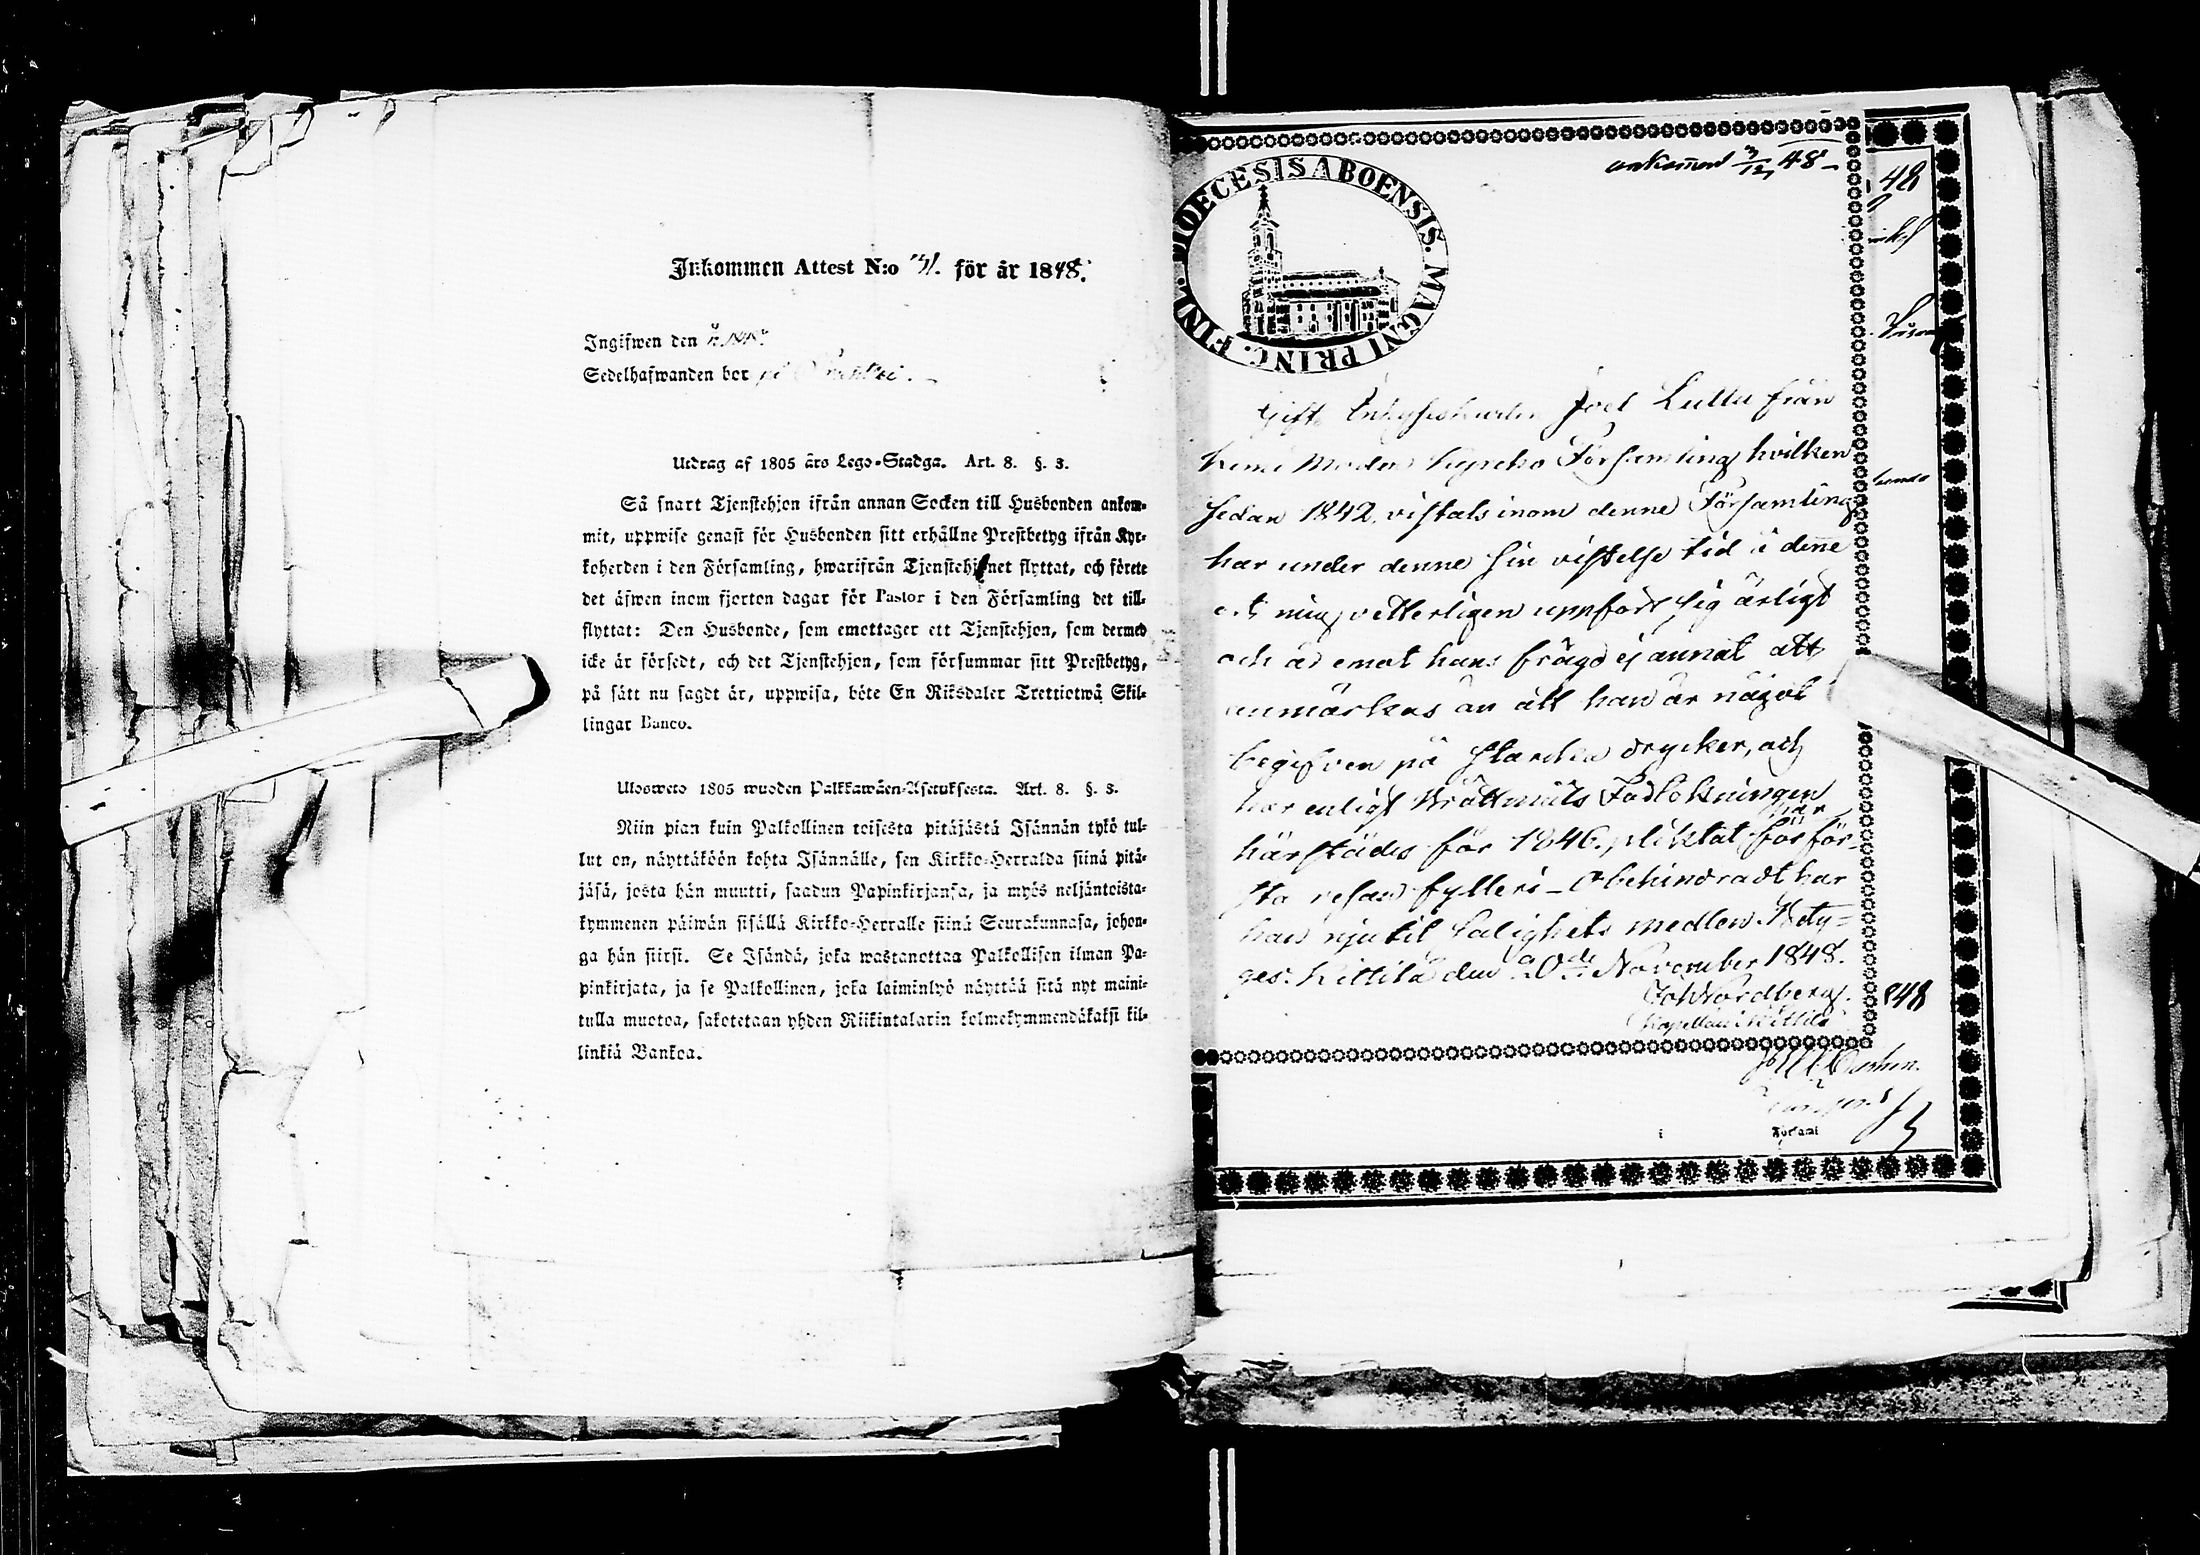 Inkommen Attest N:o 31. för år 1848.
Ingifwen den
Sedelhafwanden bor på
Utdrag af 1805 års Lego-Stadga. Art. 8. §. 3.
Så snart Tjenstehjon ifrån annan Socken till Husbonden ankom-
mit, uppwise genast för Husbonden sitt erhållne Prestbetyg ifrån Kyr-
koherden i den Församling, hwarifrån Tjenstehjonet flyttat, och förete
det äfwen inom fjorton dagar för Pastor i den Församling det till-
flyttat: Den Husbonde, som emottager ett Tjenstehjon, som dermed
icke är försedt, och det Tjenstehjon, som försummar sitt Prestbetyg,
på sätt nu sagdt är, uppwisa, böte En Riksdaler Trettiotwå Skil-
lingar Banco.
Ulosweto 1805 wuoden Palkkawäen-Asetuksesta. Art. 8. §. 3.
Niin pian kuin Palkollinen toisesta pitäjästä Isännän tykö tul-
lut on, näyttäköön kohta Isännälle, sen Kirkko-Herralda siinä pitä-
jäsä, josta hän muutti, saadun Papinkirjansa, ja myös neljäntoista-
kymmenen päiwän sisällä Kirkko-Herralle siinä Seurakunnasa, johon-
ga hän siirsi. Se Isändä, joka wastanottaa Palkollisen ilman Pa-
pinkirjata, ja se Palkollinen, joka laiminlyö näyttää sitä nyt maini-
tulla muotoa, sakotetaan yhden Riikintalarin kolmekymmendäkaksi kil-
linkiä Bankoa.
ankommen 3/12 48
DIOECESIS ABOENSIS. MAGNI PRINC. FINL.
Gift Joel Lullu från
Kemi Moder kyrcko Församling hvilken
sedan 1842, vistats inom denne Församling
har under denne sin vistelse tid i denne
ort mig vetterligen uppfördt sig ärligt
och är emot hans frägd ej annat att
anmärkas än att han är något
begifven på starcka drycker, och
har enligt
härstädes för 1846, pliktat här för för-
sta resan fylleri – Obehindradt har
han njutit Salighets medlen. Bety-
ges. Kittilä den 20de November 1848.
Joh Nordberg.
Kapellan i Kittilä
48
848
Församl